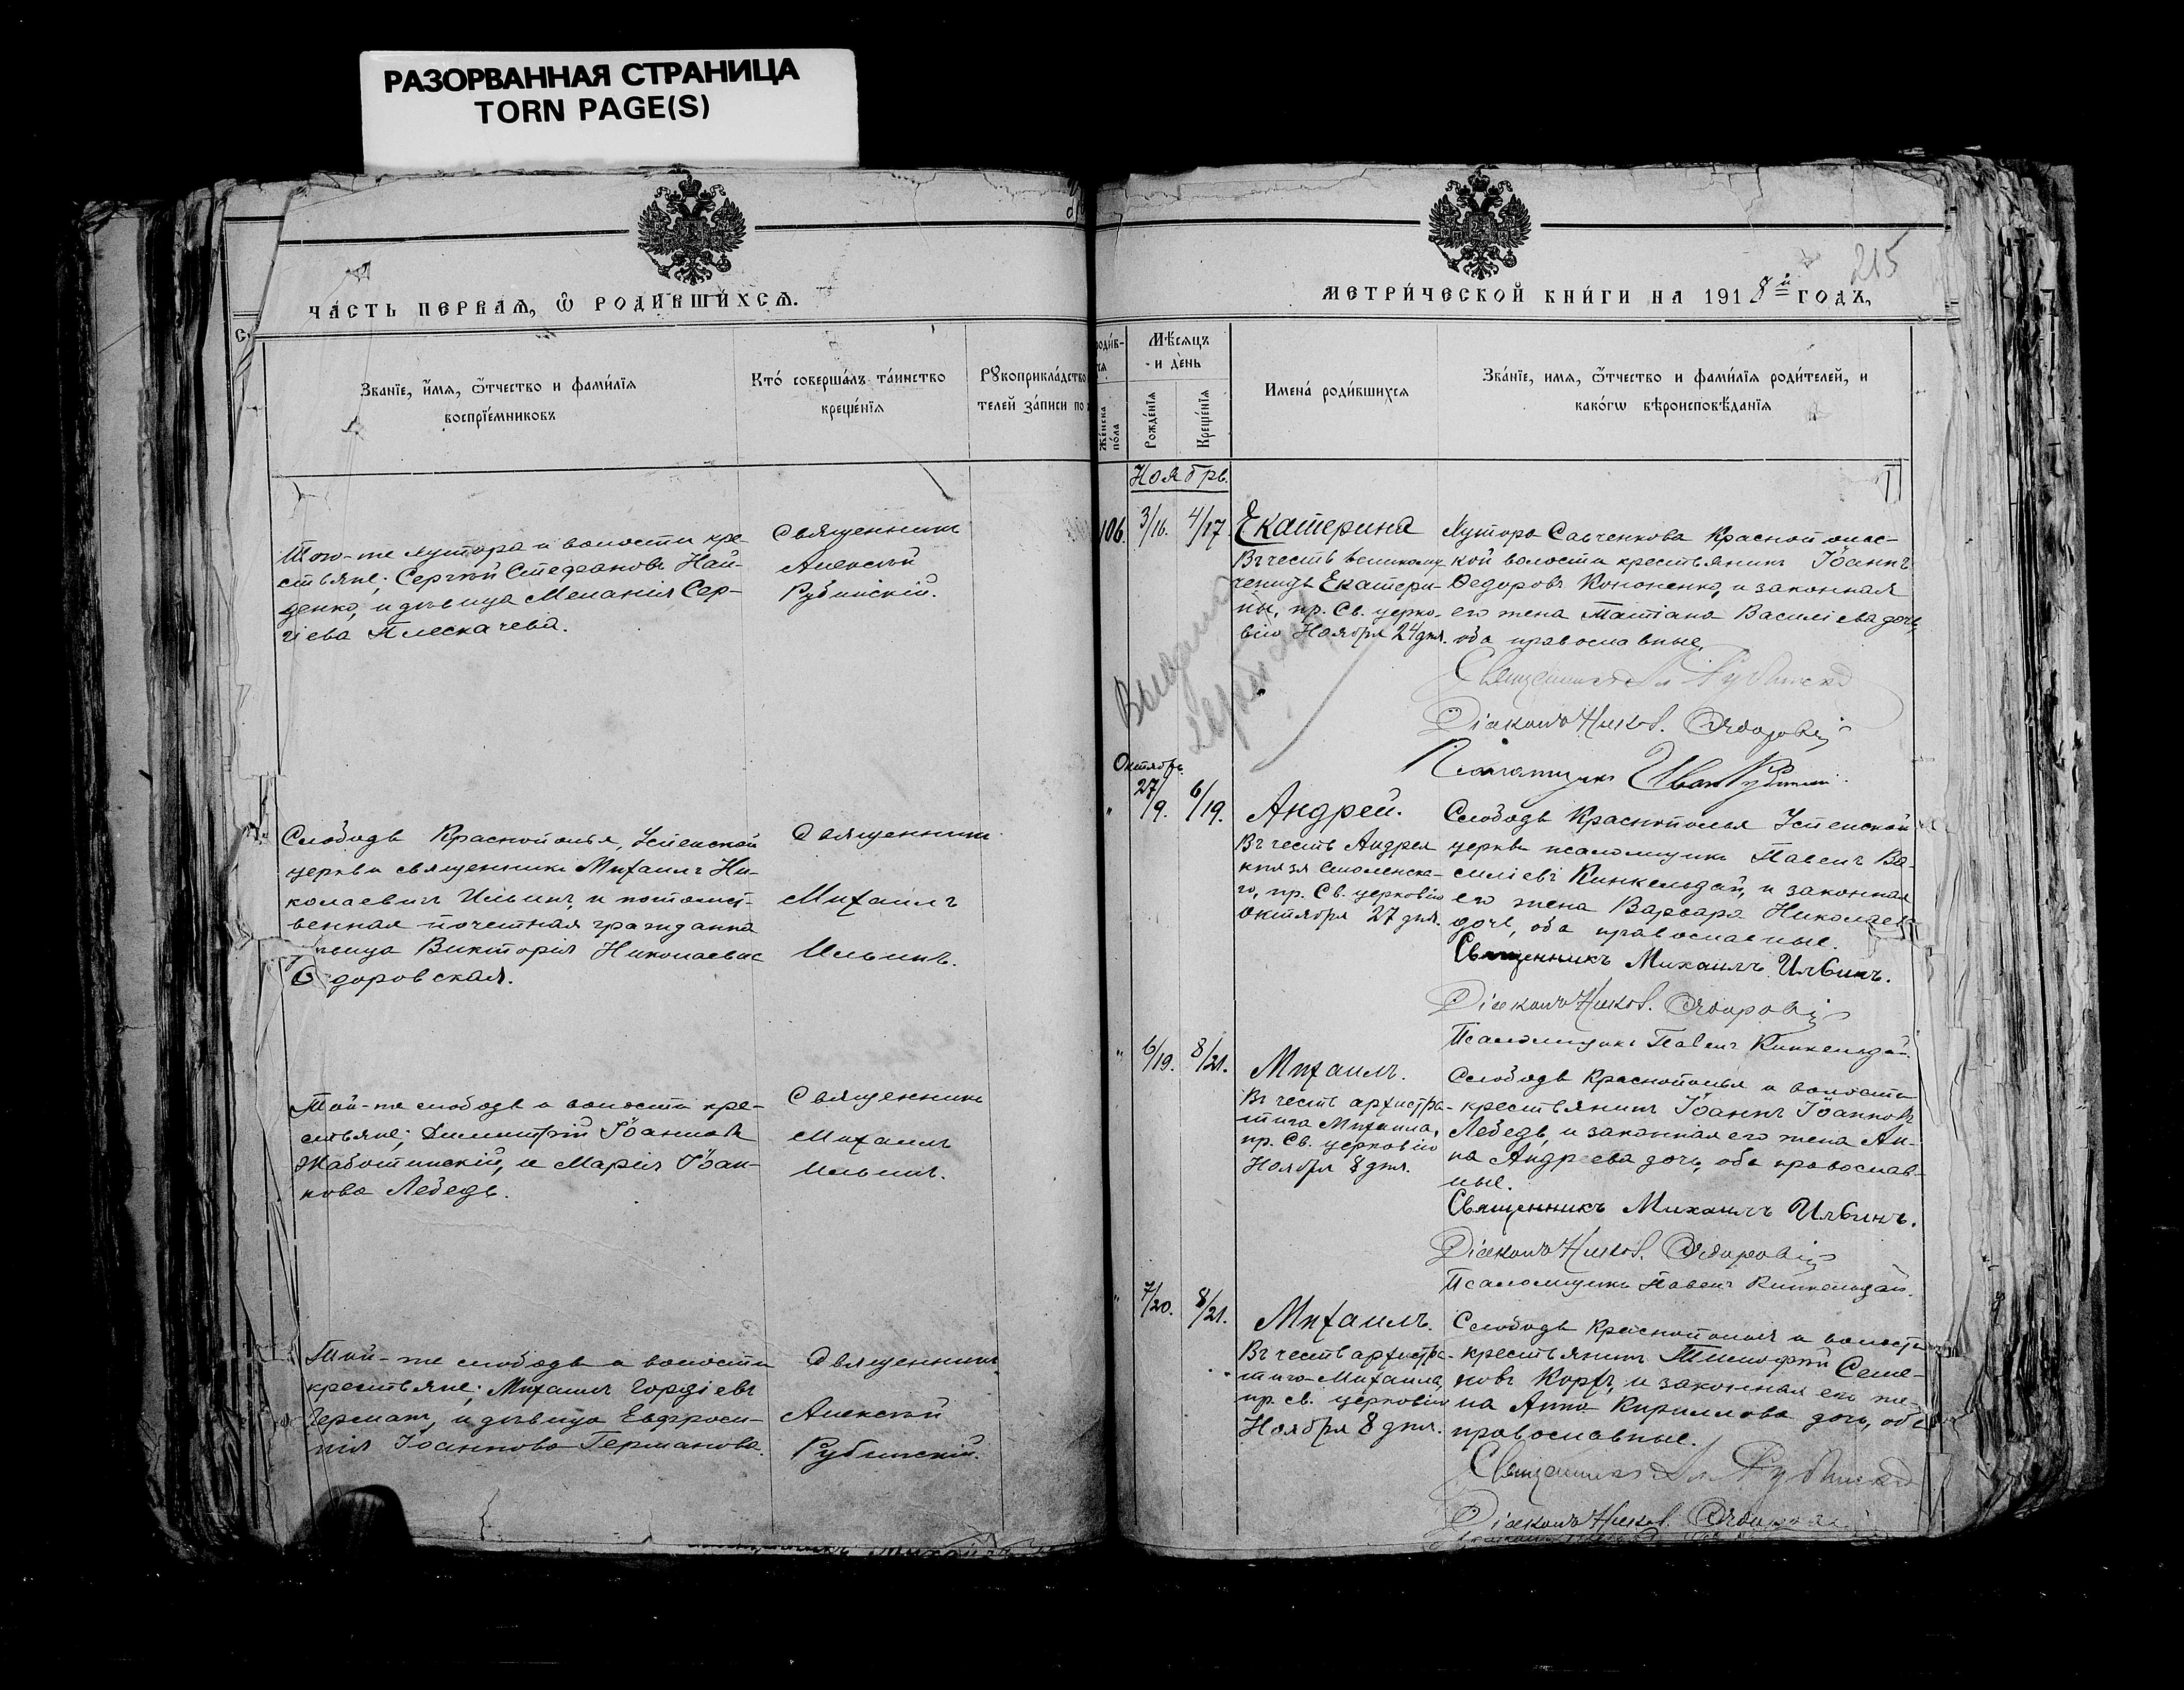 РАЗОРВАННАЯ СТРАНИЦА
TORN PAGE(S)
ЧАСТЬ ПЕРВАЯ, Ѿ РОДИВШИХСЯ.
Званїе, имя, ѿчество и фамилїя
воспрїемниковъ
Кто совершалъ таинство
крещенїя
Рꙋкоприкладство
телей записи по
Того-же хутора и волости кре-
стьяне: Сергѣй Стефановъ Най-
денко, и дѣвица Меланія Сер-
гіева Плескачева.
Священникъ
Алексѣй
Рубинскій.
Слободы Краснополья, Успенской
церкви священникъ Михаилъ Ни-
колаевичъ Ильинъ, и потомст-
венная почетная гражданка
Викторія Николаевна
доровская.
Священникъ
Михаилъ
Ильинъ.
Той-же слободы и волости кре-
стьяне: Димитрій Іоанновъ
Жаботинскій, и Марія Іоан-
нова Лебедь.
Священникъ
Михаилъ
Ильинъ.
Той-же слободы и волости
крестьяне: Михаилъ Гордіевъ
Германъ, и дѣвица Евфроси-
нія Іоаннова Германова.
Священникъ
Алексѣй
Рубинскій.
215
МЕТРИЧЕСКОЙ КНИГИ НА 1918й ГОДЪ,
Женска
пола
Мѣсяцъ
и день
Рожденїя
Крещенїя
Имена родившихся
Званїе, имя, ѿчество и фамилїя родителей, и
какогѡ вѣроисповѣданїя
Ноябрь.
106. 3/16. 4/17.
Екатерина
Въ честь великому-
ченицы Екатери-
ны, пр. Св. церко-
вію Ноября 24 дня.
Хутора Савченкова Краснополь-
кой волости крестьянинъ Іоаннъ
Ѳедоровъ Кононенко, и законная
его жена Татіана Василіева дочь,
оба православные.
Священникъ Ал. Рубинскій
Діаконъ Никол.
Псаломщикъ Иван Рубинскій.
Выдана
Октябрь.
27/9. 6/19.
Андрей.
Въ честь Андрея
князя Смоленска-
го, пр. Св. церковію
Октября 27 дня.
Слободы Краснополья Успенской
церкви псаломщикъ Павелъ Ва-
силіевъ Кинкельдай, и законная
его жена Варвара Николаева
дочь, оба православные.
Священникъ Михаилъ Ильинъ.
Діаконъ Никол.
Псаломщикъ Павелъ Кинкельдай.
" 6/19. 8/21.
Михаилъ.
Въ честь архистра-
тига Михаила,
пр. Св. церковію
Ноября 8 дня.
Слободы Краснополья и волости
крестьянинъ Іоаннъ Іоанновъ
Лебедь, и законная его жена Ан-
на Андреева дочь, оба православ-
ные.
Священникъ Михаилъ Ильинъ.
Діаконъ Никол.
Псаломщикъ Павелъ Кинкельдай.
" 7/20. 8/21.
Михаилъ.
Въ честь архистра-
тига Михаила,
пр. св. церковію
Ноября 8 дня.
Слободы Краснополья и волости
крестьянинъ Тимофѣй Семе-
новъ Корхъ, и законная его же-
на Анна Кириллова дочь, оба
православные.
Священникъ Ал. Рубинскій
Діаконъ Никол.